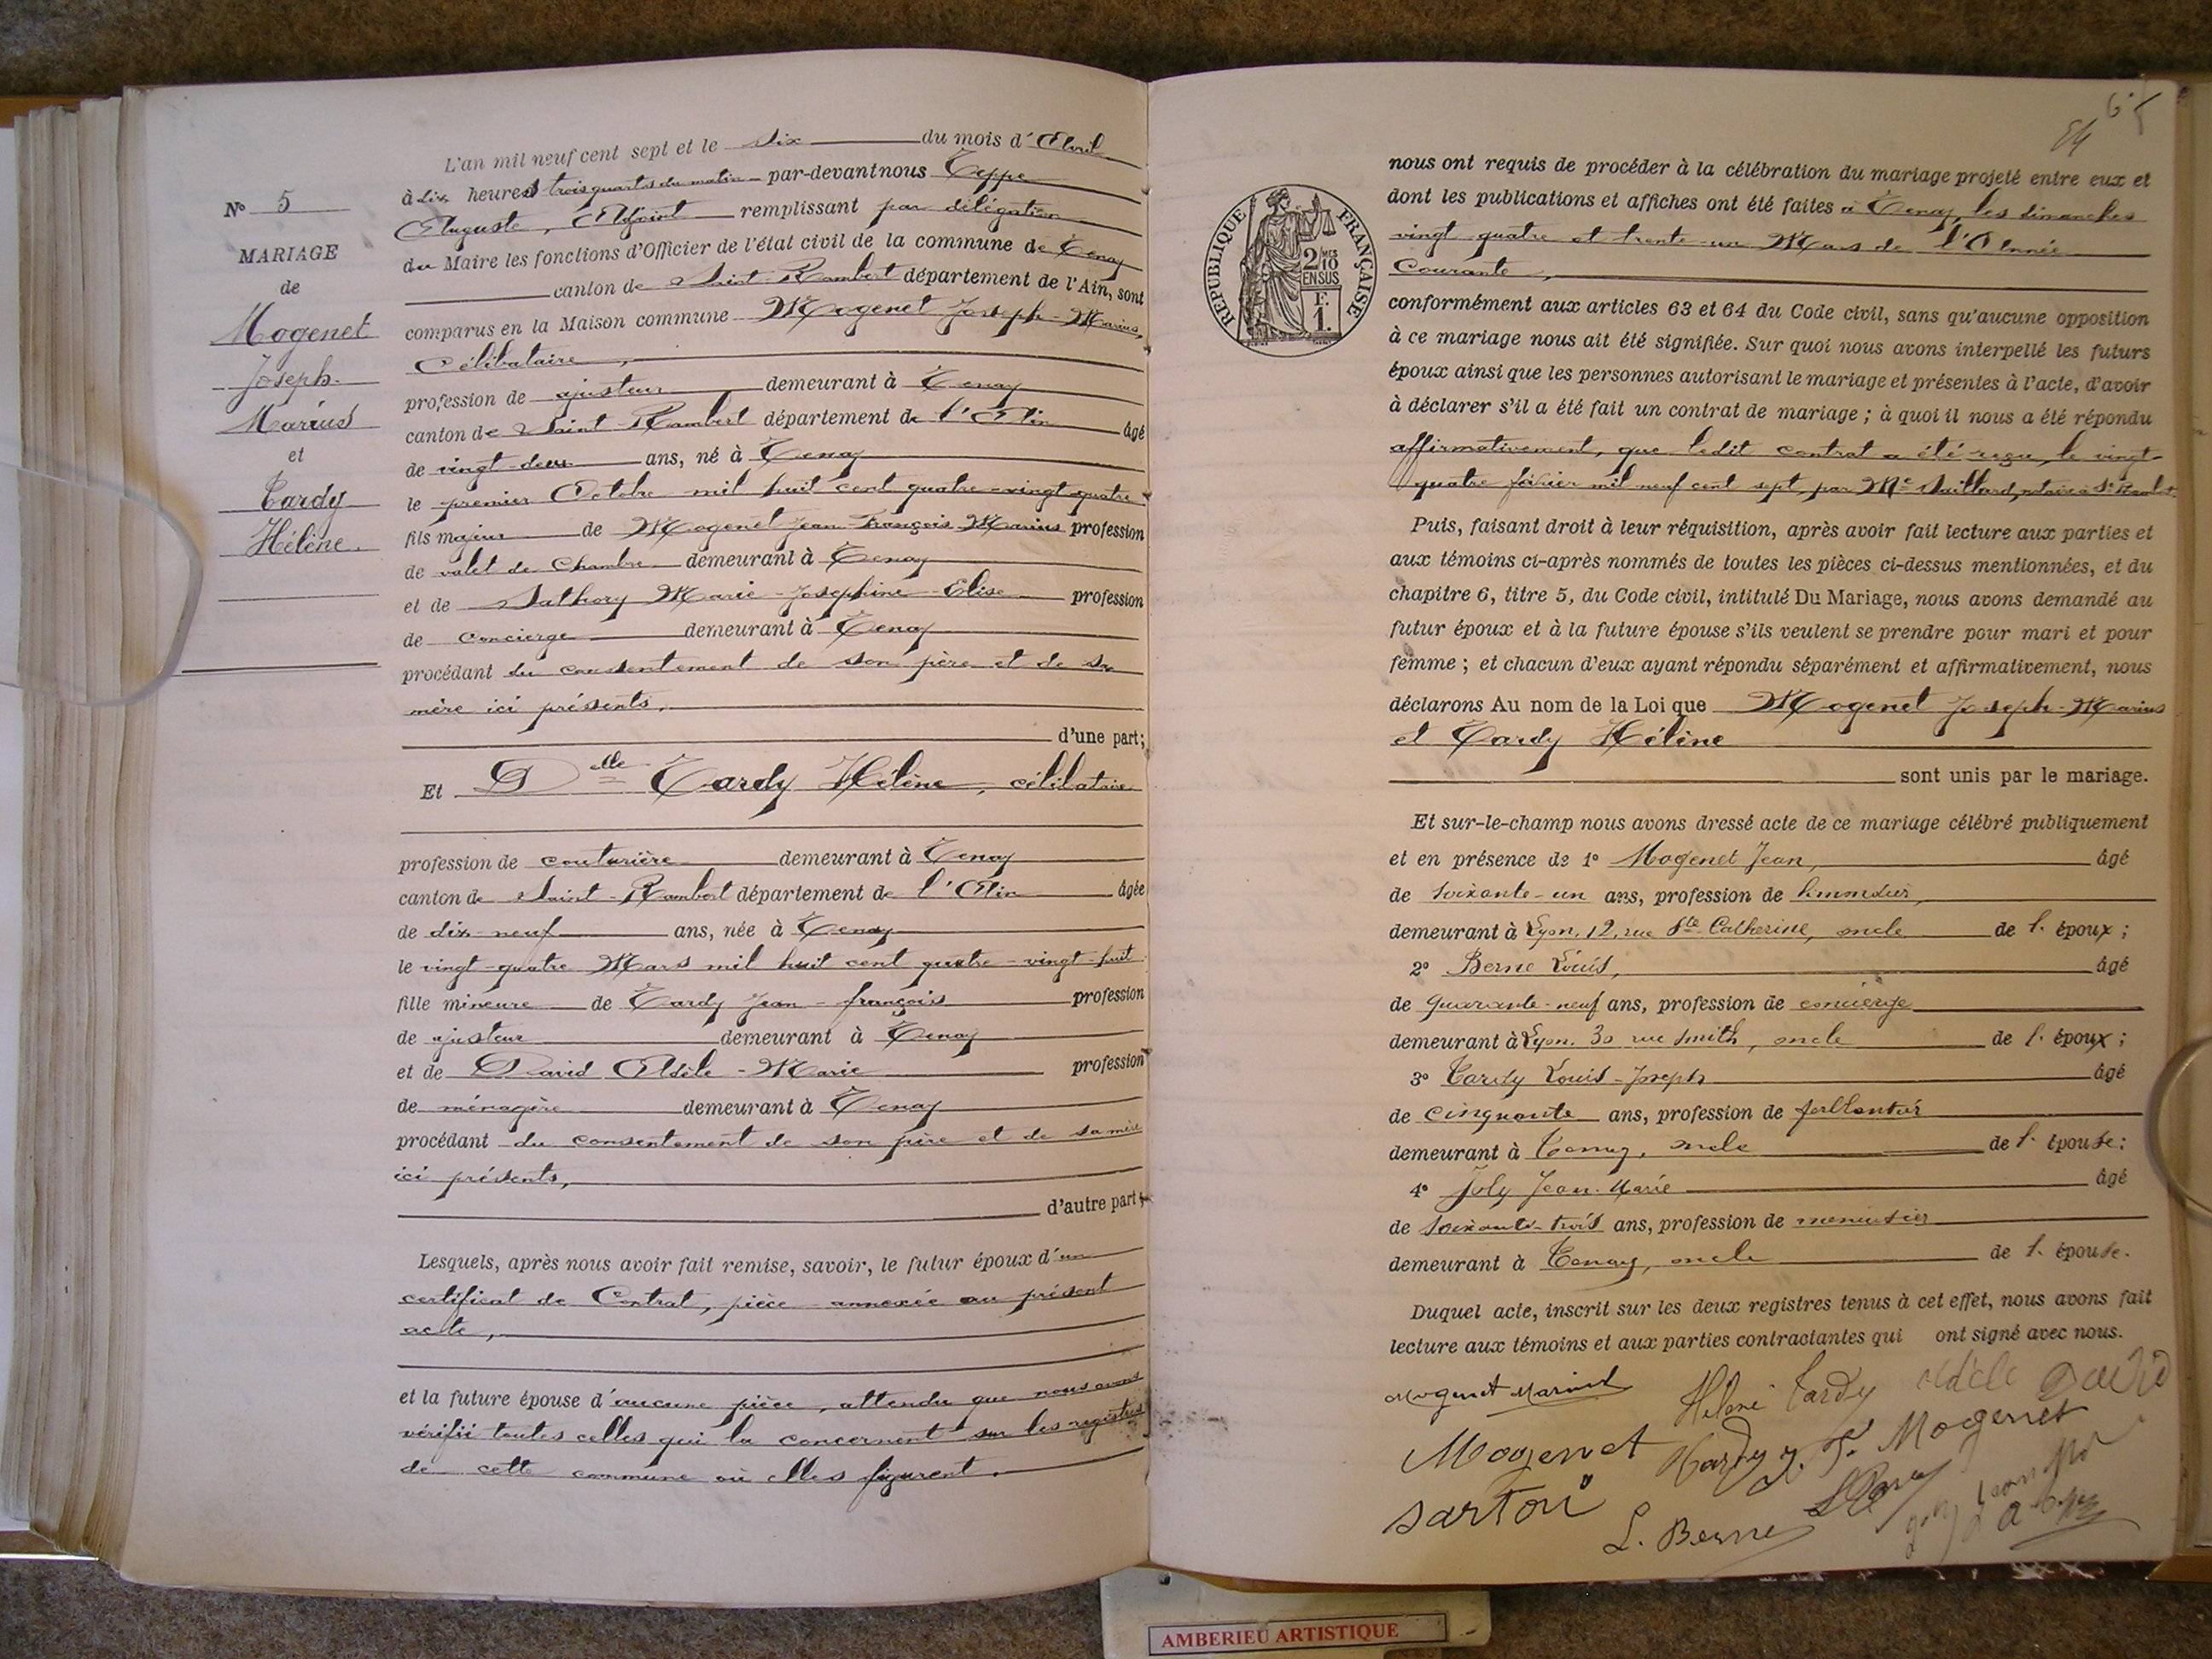 N° 5
MARIAGE
de
Mogenet
Joseph
Marius
et
Tardy
Hélène.
L'an mil neuf cent sept et le six du mois d'Avril
à dix heures trois quarts du matin par-devant nous Teppe
Auguste, Adjoint remplissant par délégation
du Maire les fonctions d'Officier de l'état civil de la commune de Tenay
canton de Saint-Rambert département de l'Ain, sont
comparus en la Maison commune Mogenet Joseph-Marius,
Célibataire,
profession de ajusteur demeurant à Tenay
canton de Saint-Rambert département de l'Ain âgé
de vingt-deux ans, né à Tenay
le premier Octobre mil huit cent quatre-vingt-quatre
fils majeur de Mogenet Jean-François-Marius profession
de valet de Chambre demeurant à Tenay
et de Marie-Joséphine-Elise profession
de concierge demeurant à Tenay
procédant du consentement de son père et de sa
mère ici présents,
d'une part;
Et Dlle Tardy Hélène, célibataire
profession de couturière demeurant à Tenay
canton de Saint-Rambert département de l'Ain âgée
de dix-neuf ans, née à Tenay
le vingt-quatre Mars mil huit cent quatre-vingt-huit
fille mineure de Tardy Jean-françois profession
de ajusteur demeurant à Tenay
et de David Adèle-Marie profession
de ménagère demeurant à Tenay
procédant du consentement de son père et de sa mère
ici présents,
d'autre part;
Lesquels, après nous avoir fait remise, savoir, le futur époux d'un
certificat de Contrat, pièce annexée au présent
acte,
et la future épouse d'aucune pièce, attendu que nous avons
vérifié toutes celles qui la concernent sur les registres
de cette commune où elles figurent.
RÉPUBLIQUE FRANÇAISE
2/10 MES
EN SUS
F.
1.
nous ont requis de procéder à la célébration du mariage projeté entre eux et
dont les publications et affiches ont été faites à Tenay, les dimanches
vingt quatre et trente-un Mars de l'Année
Courante,
conformément aux articles 63 et 64 du Code civil, sans qu'aucune opposition
à ce mariage nous ait été signifiée. Sur quoi nous avons interpellé les futurs
époux ainsi que les personnes autorisant le mariage et présentes à l'acte, d'avoir
à déclarer s'il a été fait un contrat de mariage ; à quoi il nous a été répondu
affirmativement, que ledit contrat a été reçu, le vingt-
quatre février mil neuf cent sept, par Me notaire à St Rambert.
Puis, faisant droit à leur réquisition, après avoir fait lecture aux parties et
aux témoins ci-après nommés de toutes les pièces ci-dessus mentionnées, et du
chapitre 6, titre 5, du Code civil, intitulé Du Mariage, nous avons demandé au
futur époux et à la future épouse s'ils veulent se prendre pour mari et pour
femme ; et chacun d'eux ayant répondu séparément et affirmativement, nous
déclarons Au nom de la Loi que Mogenet Joseph-Marius
et Tardy Hélène
sont unis par le mariage.
Et sur-le-champ nous avons dressé acte de ce mariage célébré publiquement
et en présence de 1° Mogenet Jean, âgé
de soixante-un ans, profession de
demeurant à Lyon, 12, rue Ste Catherine, oncle de l. époux ;
2° Berne Louis, âgé
de quarante-neuf ans, profession de concierge
demeurant à Lyon, 30 rue Smith, oncle de l. époux ;
3° Tardy Louis-Joseph âgé
de cinquante ans, profession de ferblantier
demeurant à Tenay, oncle de l. épouse ;
4° Joly Jean-Marie âgé
de soixante-trois ans, profession de menuisier
demeurant à Tenay, oncle de l. épouse.
Duquel acte, inscrit sur les deux registres tenus à cet effet, nous avons fait
lecture aux témoins et aux parties contractantes qui ont signé avec nous.
Mogenet Marius Hélène Tardy Adèle David
Mogenet Tardy J. F. Mogenet
sartori L. Berne
AMBERIEU ARTISTIQUE